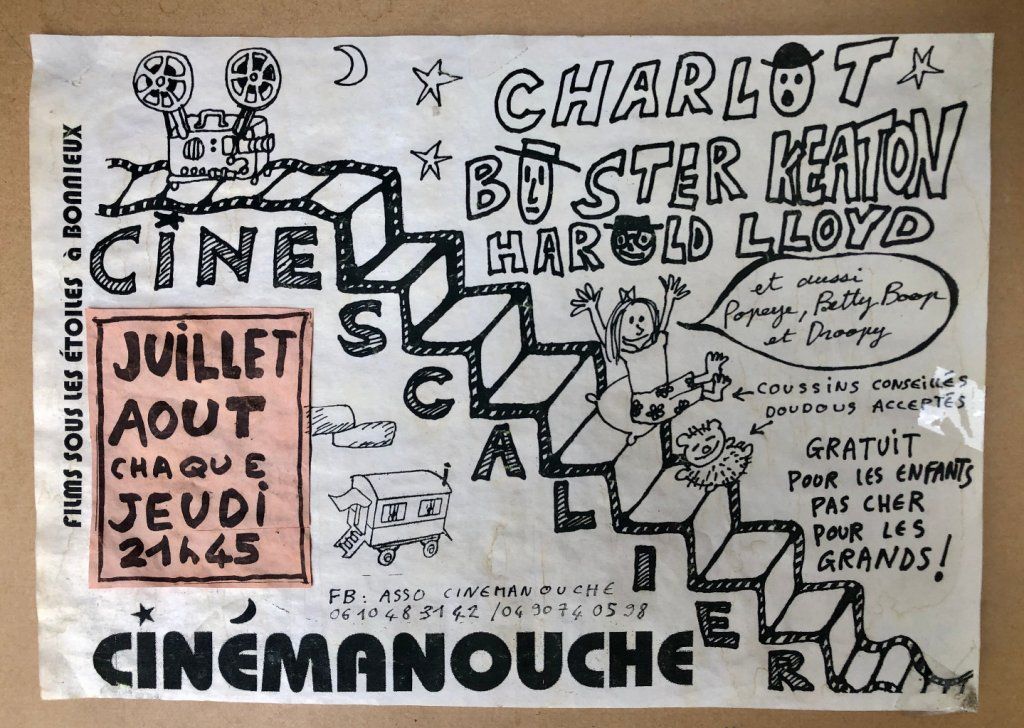 FILMS SOUS LES ÉTOILES à BONNIEUX
CHARLOT
BUSTER KEATON
HAROLD LLOYD
et aussi
Popeye, Betty Boop
et Droopy
CINESCALIER
JUILLET
AOUT
CHAQUE
JEUDI
21h45
COUSSINS CONSEILLÉS
DOUDOUS ACCEPTÉS
GRATUIT
POUR LES ENFANTS
PAS CHER
POUR LES
GRANDS!
FB: ASSO CINEMANOUCHE
06 10 48 31 42 / 04 90 74 05 98
CINÉMANOUCHE